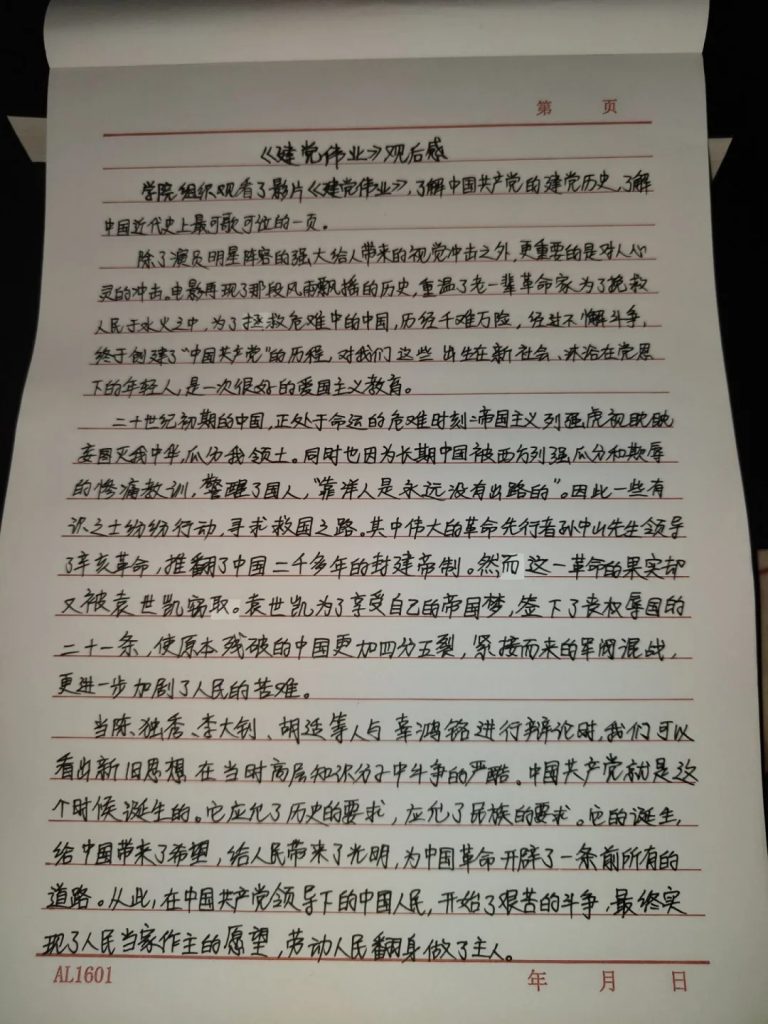 第 页
《建党伟业》观后感
学院组织观看了影片《建党伟业》,了解中国共产党的建党历史,了解
中国近代史上最可歌可泣的一页。
除了演员明星阵容的强大给人带来的视觉冲击之外,更重要的是对人心
灵的冲击。电影再现了那段风雨飘摇的历史,重温了老一辈革命家为了挽救
人民于水火之中,为了拯救危难中的中国,历经千难万险,经过不懈斗争,
终于创建了“中国共产党”的历程,对我们这些出生在新社会、沐浴在党恩
下的年轻人,是一次很好的爱国主义教育。
二十世纪初期的中国,正处于命运的危难时刻:帝国主义列强虎视眈眈
妄图灭我中华,瓜分我领土。同时也因为长期中国被西方列强瓜分和欺辱
的惨痛教训,警醒了国人,“靠洋人是永远没有出路的”。因此一些有
识之士纷纷行动,寻求救国之路。其中伟大的革命先行者孙中山先生领导
了辛亥革命,推翻了中国二千多年的封建帝制。然而这一革命的果实却
又被袁世凯窃取。袁世凯为了享受自己的帝国梦,签下了丧权辱国的
二十一条,使原本残破的中国更加四分五裂,紧接而来的军阀混战,
更进一步加剧了人民的苦难。
当陈独秀、李大钊、胡适等人与辜鸿铭进行辩论时,我们可以
看出新旧思想在当时高层知识分子中斗争的严酷。中国共产党就是这
个时候诞生的。它应允了历史的要求,应允了民族的要求。它的诞生,
给中国带来了希望,给人民带来了光明,为中国革命开辟了一条前所有的
道路。从此,在中国共产党领导下的中国人民,开始了艰苦的斗争,最终实
现了人民当家作主的愿望,劳动人民翻身做了主人。
AL1601 年 月 日